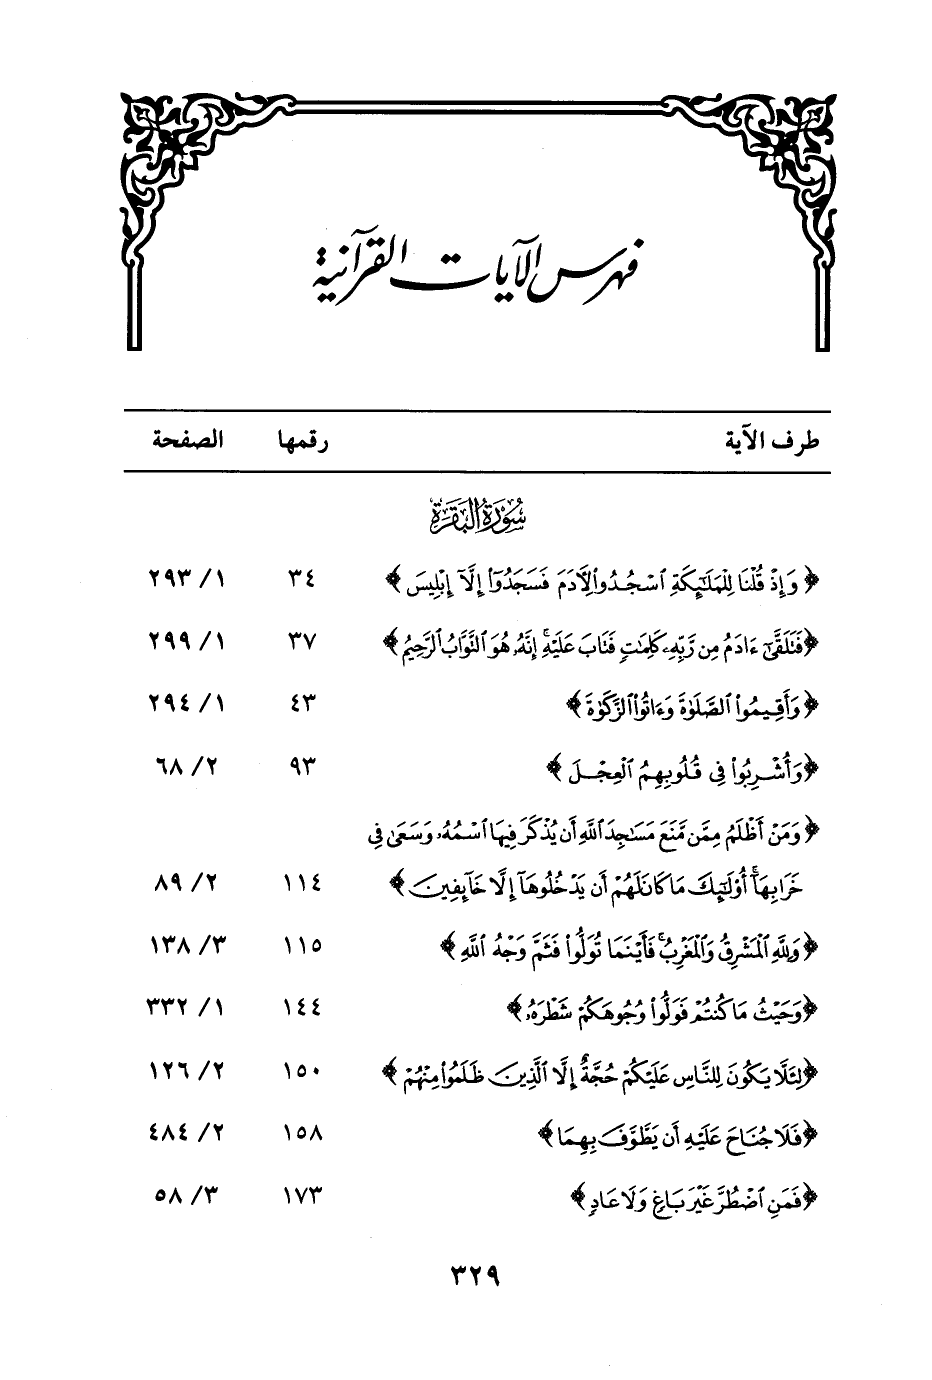 فهرس الآيات القرآنية
طرف الآية رقمها الصفحة
سُورَةُ البَقَرَةِ
﴿وَإِذْ قُلْنَا لِلْمَلَٰٓئِكَةِ ٱسْجُدُوا۟ لِءَادَمَ فَسَجَدُوٓا۟ إِلَّآ إِبْلِيسَ﴾ ٣٤ ١/ ٢٩٣
﴿فَتَلَقَّىٰٓ ءَادَمُ مِن رَّبِّهِۦ كَلِمَٰتٍ فَتَابَ عَلَيْهِ ۚ إِنَّهُۥ هُوَ ٱلتَّوَّابُ ٱلرَّحِيمُ﴾ ٣٧ ١/ ٢٩٩
﴿وَأَقِيمُوا۟ ٱلصَّلَوٰةَ وَءَاتُوا۟ ٱلزَّكَوٰةَ﴾ ٤٣ ١/ ٢٩٤
﴿وَأُشْرِبُوا۟ فِى قُلُوبِهِمُ ٱلْعِجْلَ﴾ ٩٣ ٢/ ٦٨
﴿وَمَنْ أَظْلَمُ مِمَّن مَّنَعَ مَسَٰجِدَ ٱللَّهِ أَن يُذْكَرَ فِيهَا ٱسْمُهُۥ وَسَعَىٰ فِى
خَرَابِهَآ ۚ أُو۟لَٰٓئِكَ مَا كَانَ لَهُمْ أَن يَدْخُلُوهَآ إِلَّا خَآئِفِينَ﴾ ١١٤ ٢/ ٨٩
﴿وَلِلَّهِ ٱلْمَشْرِقُ وَٱلْمَغْرِبُ ۚ فَأَيْنَمَا تُوَلُّوا۟ فَثَمَّ وَجْهُ ٱللَّهِ﴾ ١١٥ ٣/ ١٣٨
﴿وَحَيْثُ مَا كُنتُمْ فَوَلُّوا۟ وُجُوهَكُمْ شَطْرَهُۥ﴾ ١٤٤ ١/ ٣٣٢
﴿لِئَلَّا يَكُونَ لِلنَّاسِ عَلَيْكُمْ حُجَّةٌ إِلَّا ٱلَّذِينَ ظَلَمُوا۟ مِنْهُمْ﴾ ١٥٠ ٢/ ١٢٦
﴿فَلَا جُنَاحَ عَلَيْهِ أَن يَطَّوَّفَ بِهِمَا﴾ ١٥٨ ٢/ ٤٨٤
﴿فَمَنِ ٱضْطُرَّ غَيْرَ بَاغٍ وَلَا عَادٍ﴾ ١٧٣ ٣/ ٥٨
٣٢٩